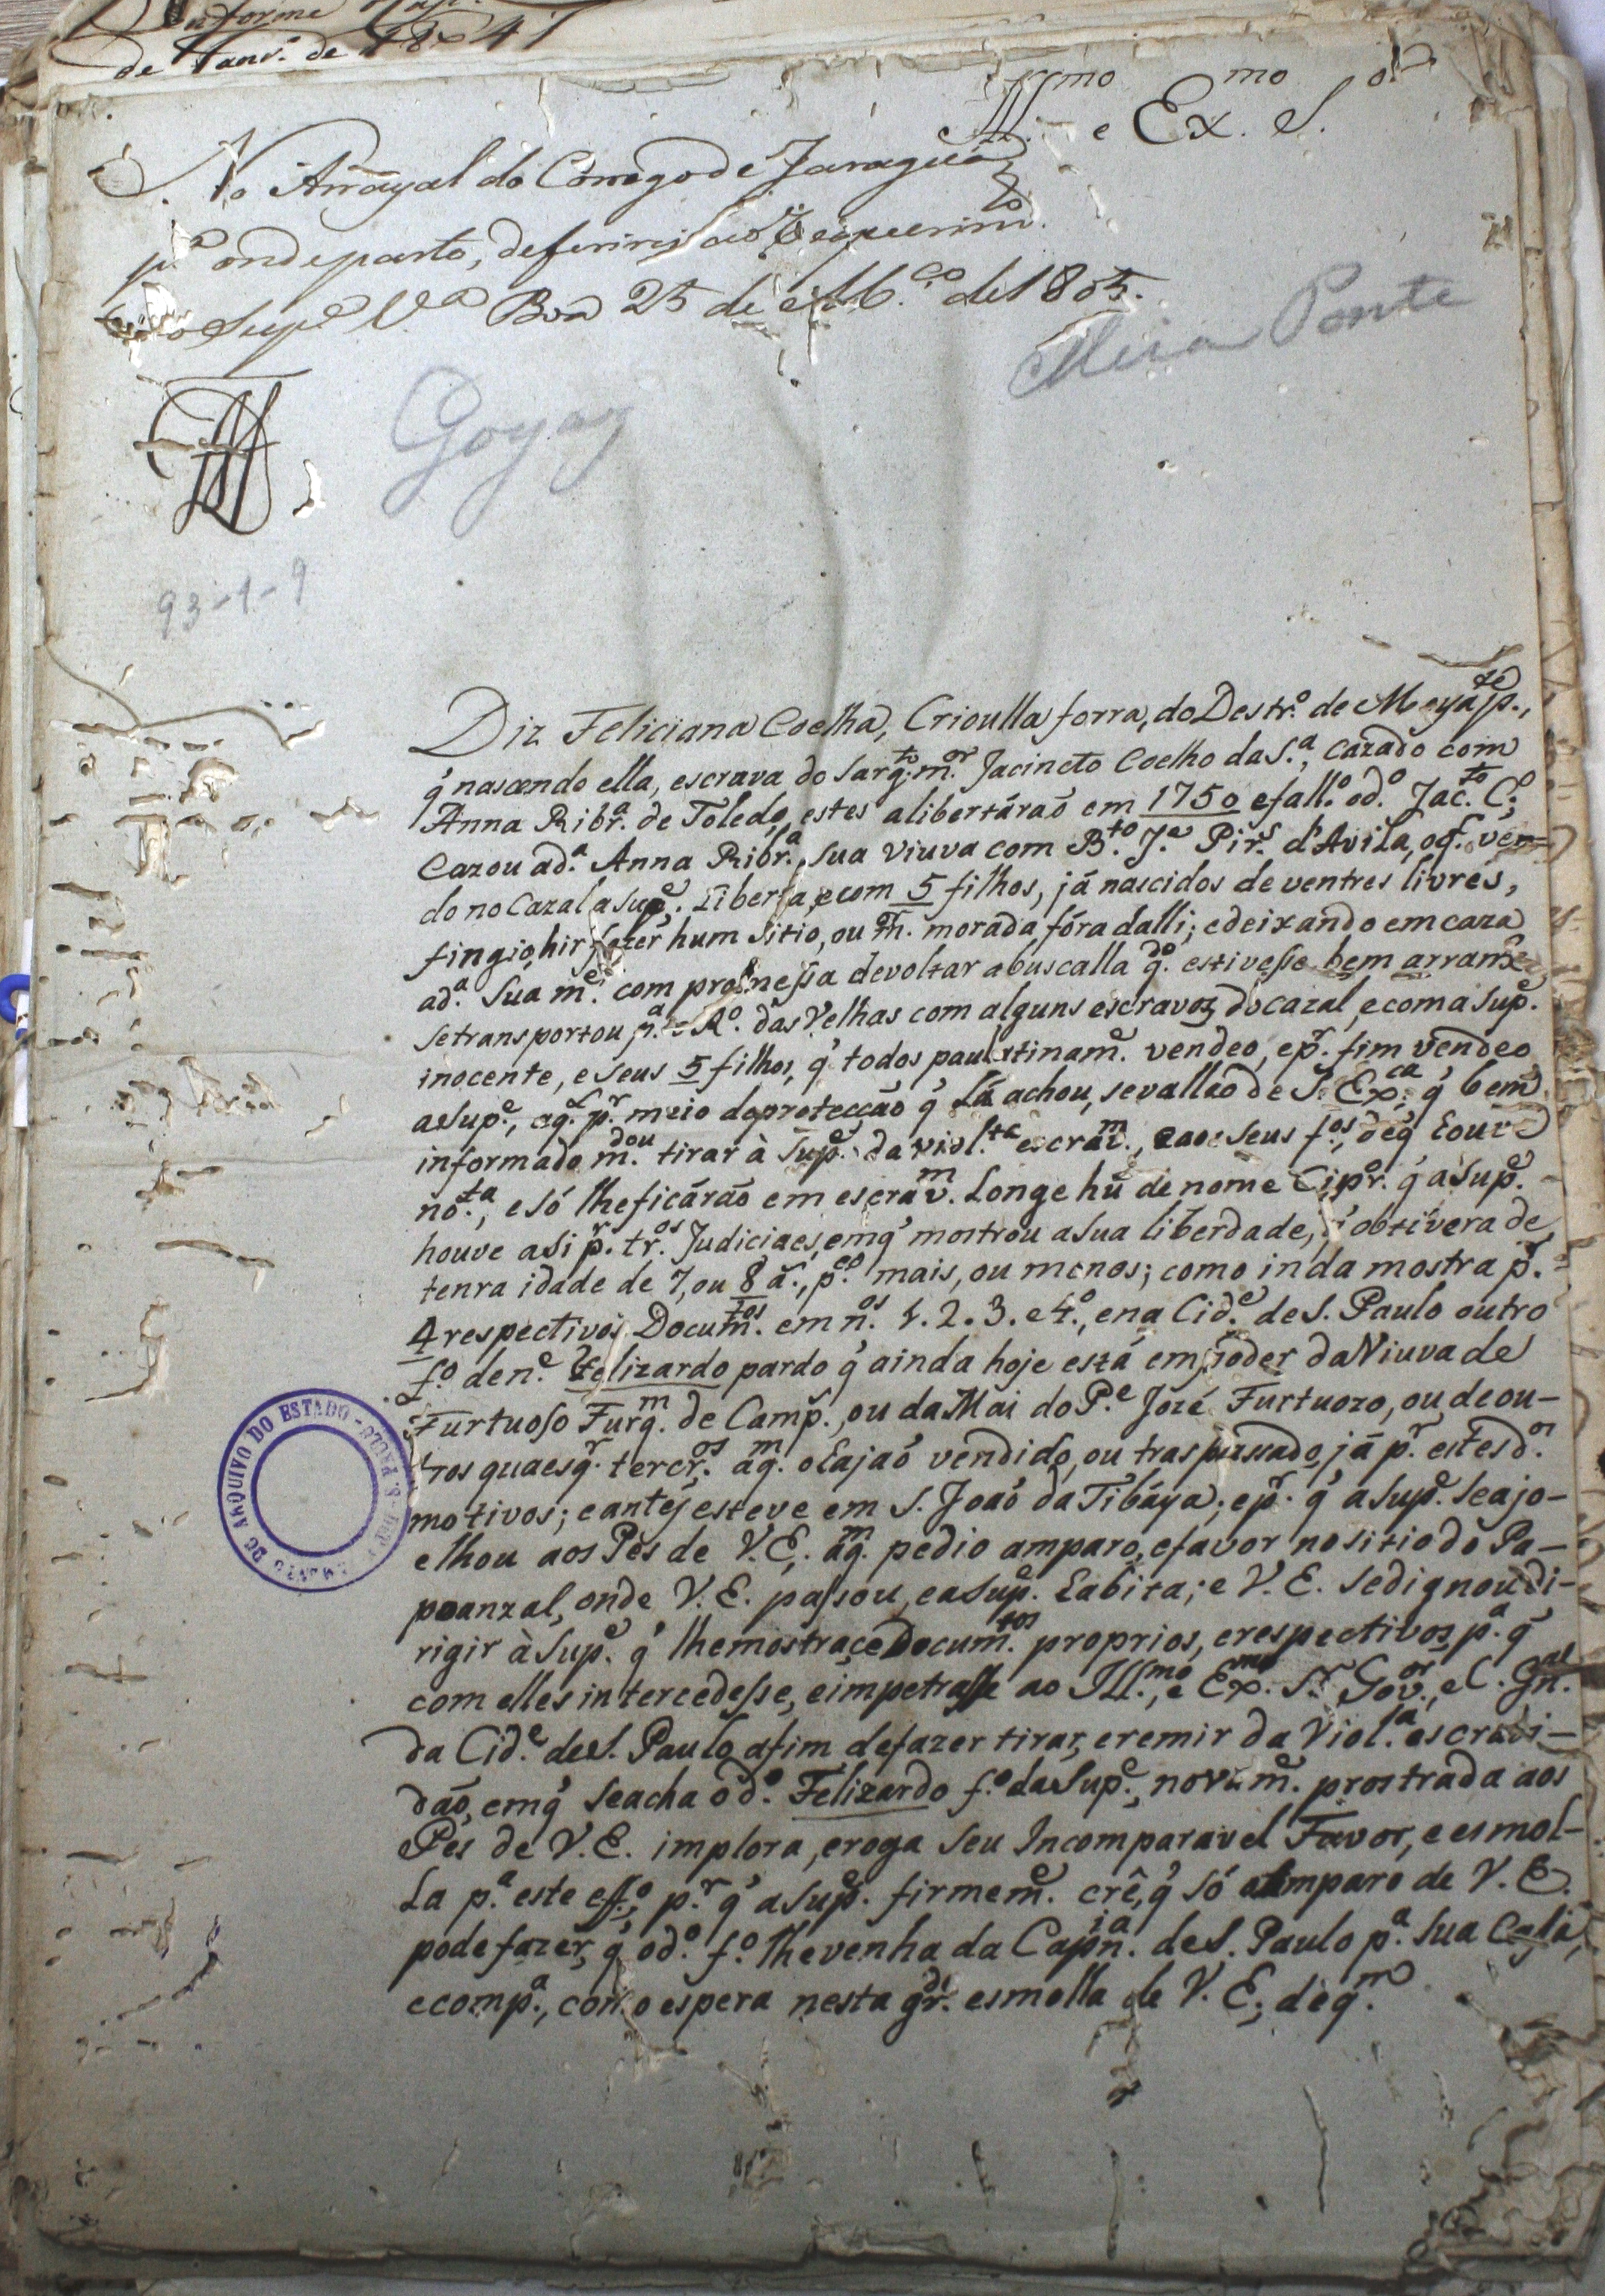 Informe
de Janr.º de 18 41
Ill.mo e Ex.mo S.or
No Arrayal do Corrego de Jaraguá
p.ª onde parto, deferirei ao Requerim.to
Sup.e V.ª Boa 25 de M.ço de 1805.
Meia Ponte
Goyaz
93-1-9
Diz Feliciana Coelha, Crioulla forra, do Destr.º de Meya p.te,
q̃ nascendo ella, escrava do Sarg.to m.or Jacincto Coelho da S.ª, cazado com
Anna Ribr.ª de Toledo, estes a libertáraõ em 1750 e fall.º o d.º Jac.to C.º;
Cazou a d.ª Anna Ribr.ª, sua viuva com B.to J.e Pir.s d'Avila, o q.l ven=
do no Cazal a Sup.e, Liberta, e com 5 filhos, já nascidos de ventres livres,
fingio, hir fazer hum sitio, ou m. morada fóra dalli; e deixando em caza
a d.ª Sua m.e com promessa de voltar a buscalla q.do estivesse bem arram.e
se transportou p.ª o R.º das Velhas com alguns escravos do cazal, e com a Sup.e
inocente, e seus 5 filhos, q̃ todos paulatinam.e vendeo, e p.r fim vendeo
a Sup.e, a q.l p.r meio da protecção q̃ lá achou, se valleo de S. Ex.ca q̃ bem
informado m.dou tirar à Sup.e da viol.ta escrav.m, e aos seus f.os, de q̃ houve
no.ta, e só lhe ficárão em escrav.m Longe hũ de nome Cipr. q̃ a Sup.e
houve a si p.r tr.os Judiciaes, em q̃ mostrou a sua liberdade, q̃ obtivera de
tenra idade de 7, ou 8 a., p.co mais, ou menos; como inda mostra p.r
4 respectivos Docum.tos em n.os 1. 2. 3. e 4.º, e na Cid.e de S. Paulo outro
f.º de n.e Felizardo pardo q̃ ainda hoje está em poder da Viuva de
Furtuoso Furq.m de Camp.s, ou da Mai do P.e Jozé Furtuozo, ou de ou-
tros quaesq.r tercr.os a q.m o hajaõ vendido, ou traspassado, já p.r estes d.os
motivos; e antes esteve em S. Joaõ da Tibáya; e p.r q̃ a Sup.e se ajo-
elhou aos Pés de V. E., a q.m pedio amparo, e favor no sitio do Pa-
poanzal, onde V. E. passou, e a Sup.e habita; e V. E. se dignou di-
rigir à Sup.e q̃ lhe mostrace Docum.tos proprios, e respectivos p.ª q̃
com elles intercedesse, e impetrasse ao Ill.mo, e Ex.mo S.r Gov.or, e C. Gn.al
da Cid.e de S. Paulo a fim de fazer tirar, e remir da Viol.ta escravi-
dão, em q̃ se acha o d.º Felizardo f.º da Sup.e, novam.e prostrada aos
Pés de V. E. implora, e roga seu Incomparavel Favor, e esmol-
la p.ª este eff.º, p.r q̃ a Sup.e firmem.e crê, q̃ só o Amparo de V. E.
pode fazer, q̃ o d.º f.º lhe venha da Capn.ia de S. Paulo p.ª sua Caza,
e comp.ª, como espera nesta gr.de esmolla de V. E., de q.m
ARQUIVO DO ESTADO - S. PAULO